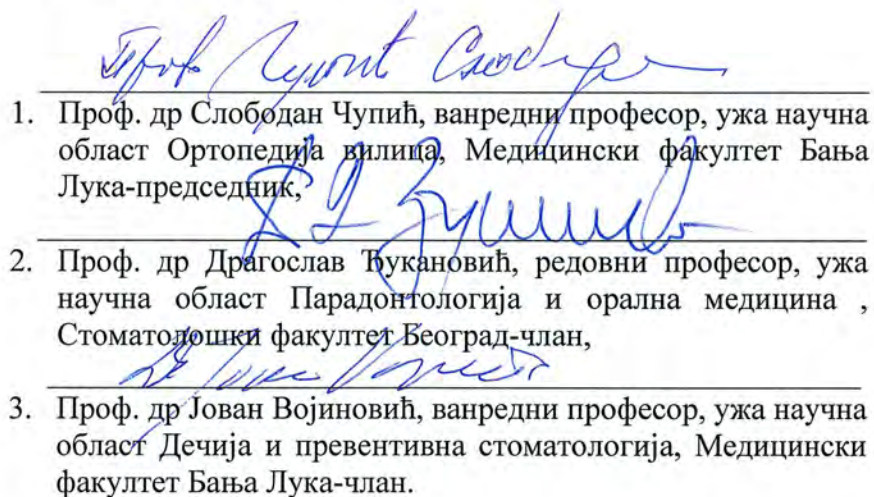 Проф Чупић Слободан
1. Проф. др Слободан Чупић, ванредни професор, ужа научна
област Ортопедија вилица, Медицински факултет Бања
Лука-председник,
2. Проф. др Драгослав Ђукановић, редовни професор, ужа
научна област Парадонтологија и орална медицина ,
Стоматолошки факултет Београд-члан,
3. Проф. др Јован Војиновић, ванредни професор, ужа научна
област Дечија и превентивна стоматологија, Медицински
факултет Бања Лука-члан.